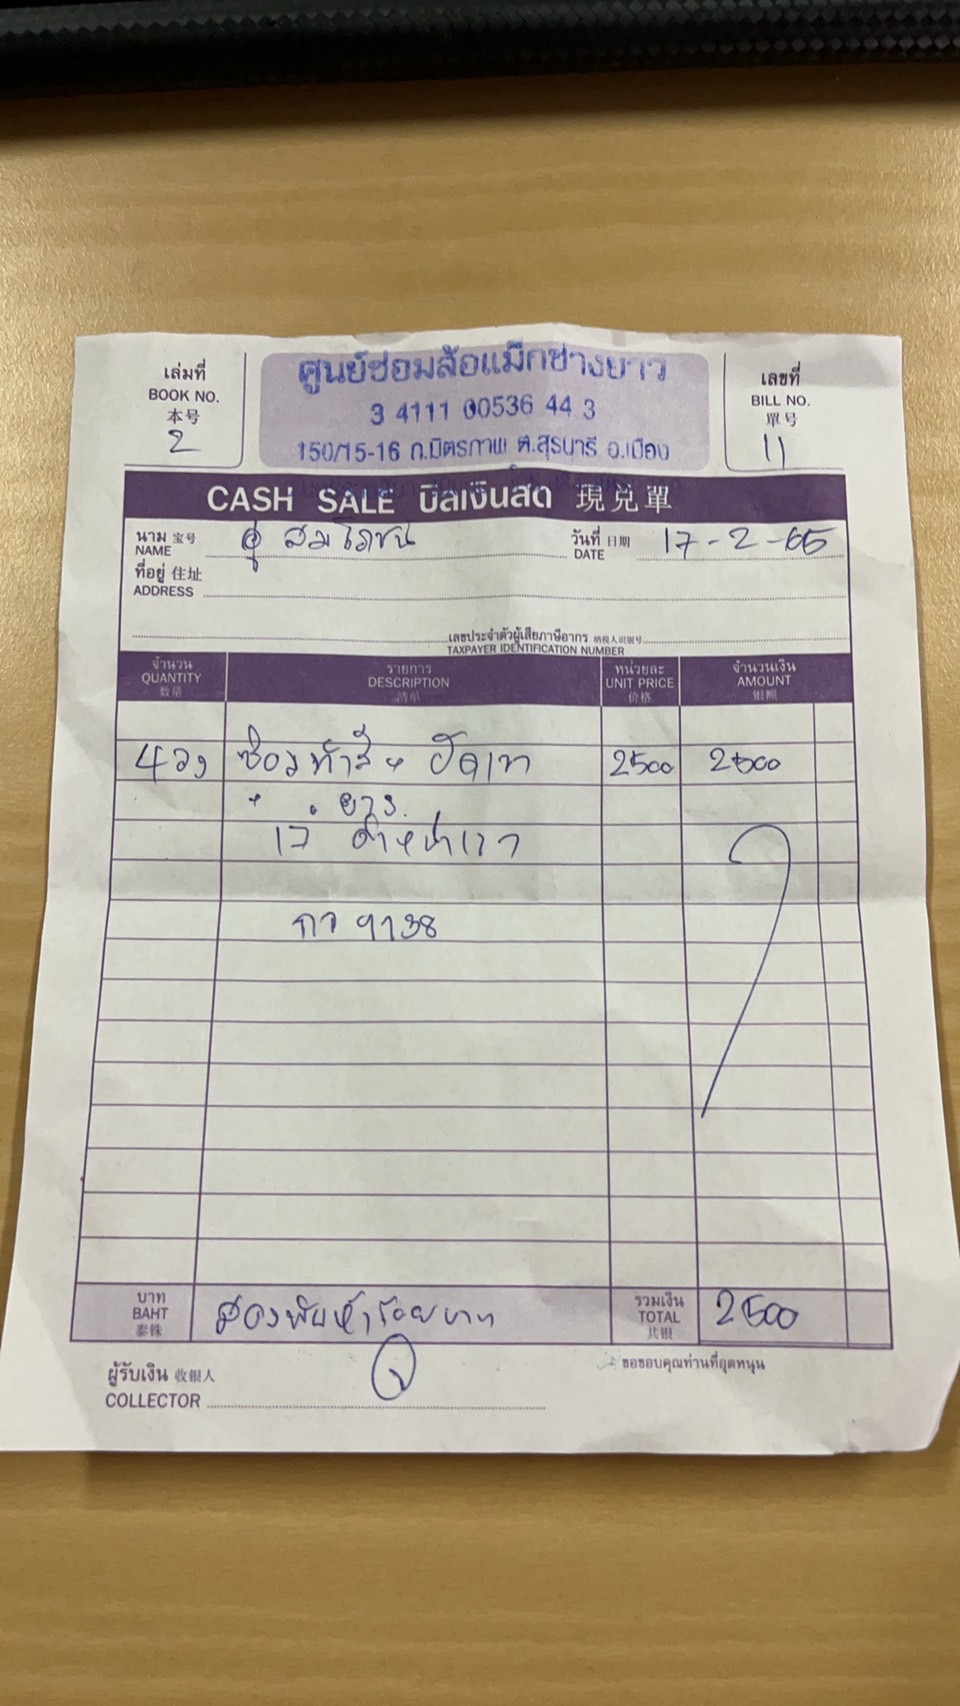 เล่มที่
BOOK NO.
本号
2
ศูนย์ซ่อมล้อแม็กช่างยาว
3 4111 00536 44 3
150/15-16 ถ.มิตรภาพ ต.สุรนารี อ.เมือง
เลขที่
BILL NO.
單号
11
CASH SALE บิลเงินสด 現兑單
นาม 宝号
NAME
อู่ สมโภชน์
วันที่ 日期
DATE
17-2-65
ที่อยู่ 住址
ADDRESS
เลขประจำตัวผู้เสียภาษีอากร 纳税人识别号
TAXPAYER IDENTIFICATION NUMBER
จำนวน
QUANTITY
数量
รายการ
DESCRIPTION
清单
หน่วยละ
UNIT PRICE
价格
จำนวนเงิน
AMOUNT
银额
4 วง ซ่อมทำสี 2500 2500
" . ยาง
17 ดำ
กว 9138
บาท
BAHT
泰銖
สองพันห้าร้อยบาท
รวมเงิน
TOTAL
共银
2500
ผู้รับเงิน 收銀人
COLLECTOR
ขอขอบคุณท่านที่อุดหนุน